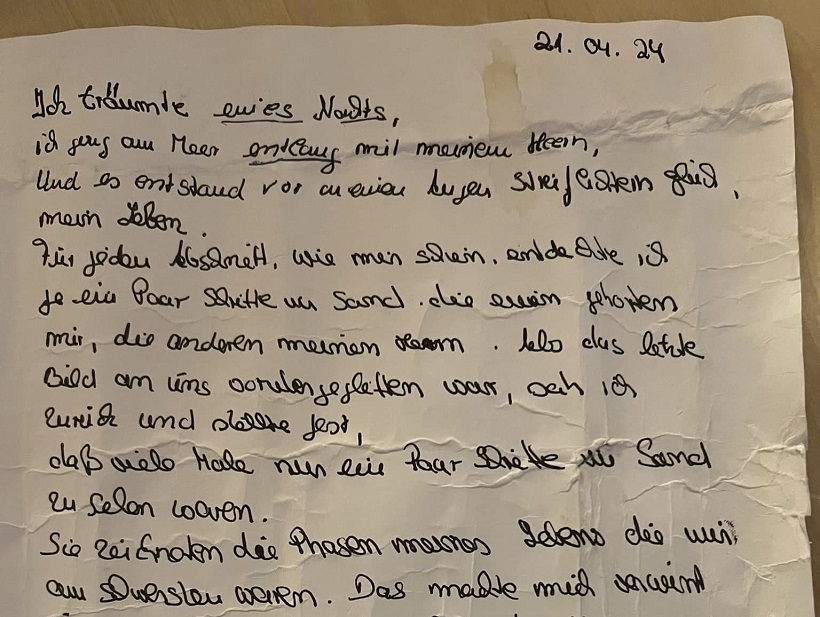 21.04.24
Ich träumte eines Nachts,
ich ging am Meer entlang mit meinem Herrn,
Und es entstand vor meinen Augen Streiflichtern gleich,
mein Leben.
Für jeden Abschnitt, wie mir schien, entdeckte ich
je ein Paar Schritte im Sand. die einen gehörten
mir, die anderen meinem Herrn. Als das letzte
Bild an uns vorübergeglitten war, sah ich
zurück und stellte fest,
daß viele Male nur ein Paar Schritte im Sand
zu sehen waren.
Sie zeichneten die Phasen meines Lebens die mir
am schwersten waren. Das machte mich verwirrt